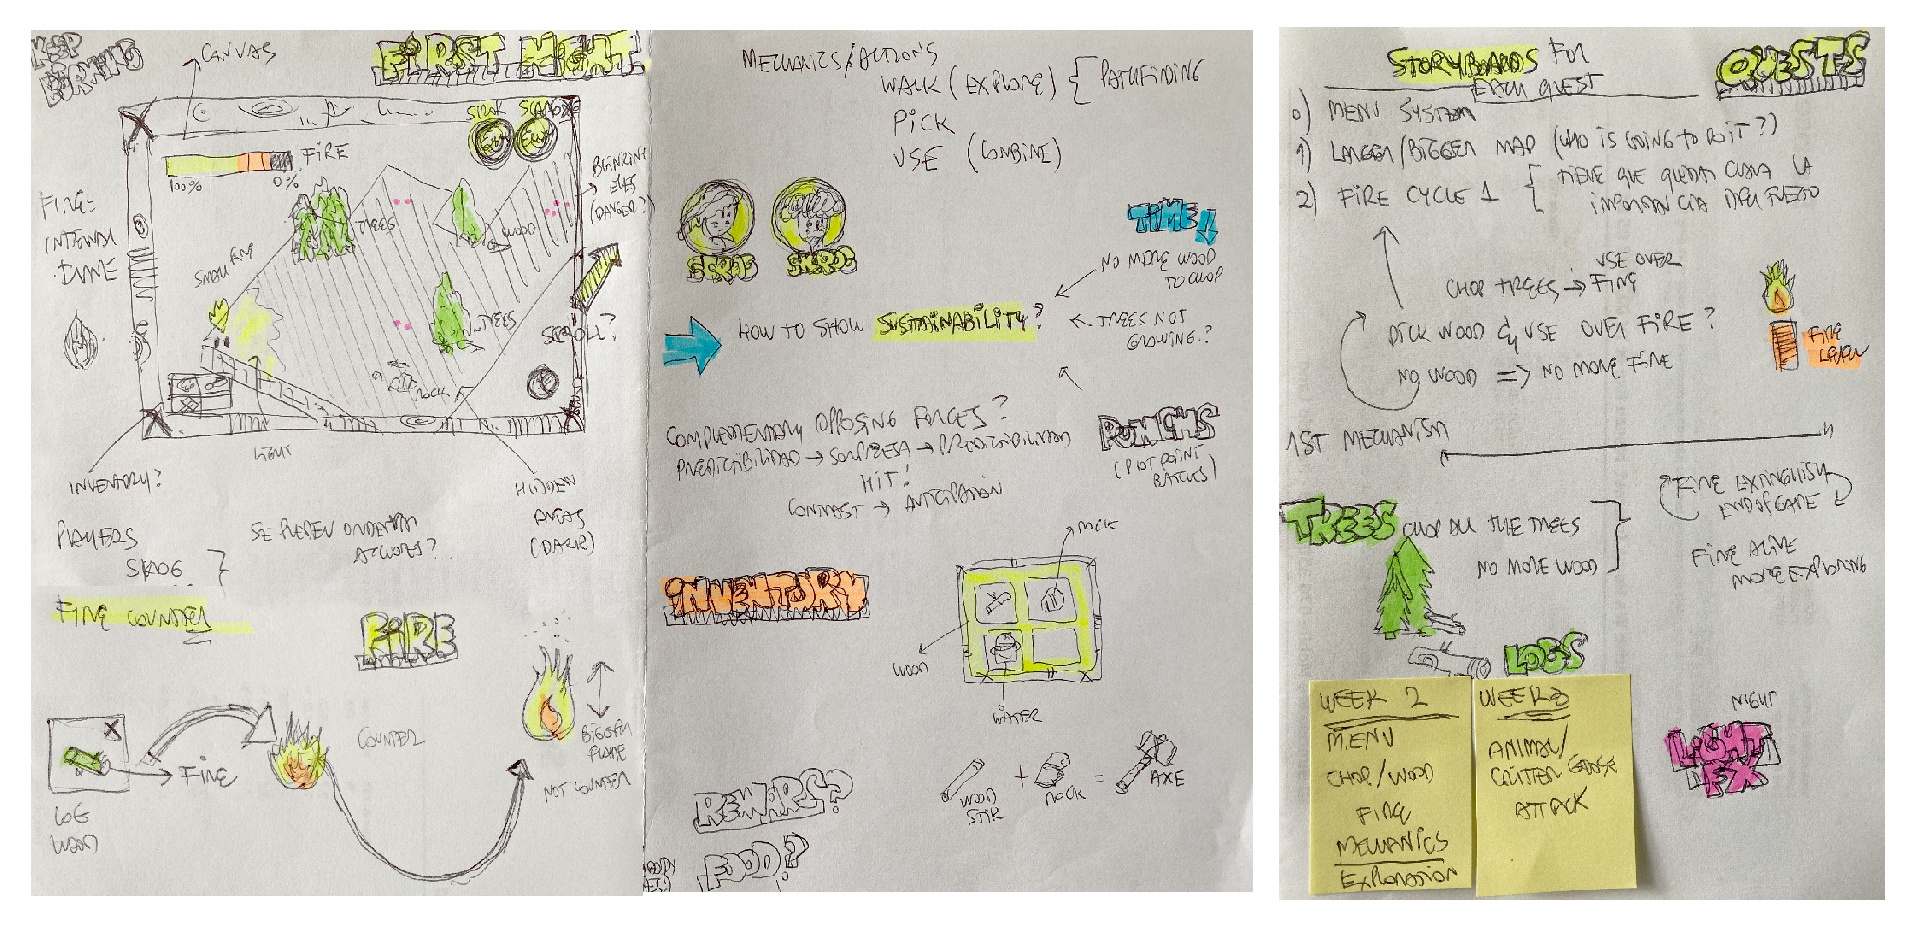 KEEP
BURNING
CANVAS
FIRST NIGHT
FIRE
100%
0%
BLINKING
EYES
(DANGER?)
FIRE=
TREES
WOOD
SMALL FIRE
TREES
SCROLL?
ROCK
LIGHT
INVENTORY?
HIDDEN
AREAS
(DARK)
PLAYERS
SKOG
SE PUEDEN
FIRE COUNTER
FIRE
COUNTER
BIGGER
FLAME
NOT COUNTER
FIRE
LOG
WOOD
MECHANICS/ACTIONS
WALK (EXPLORE) { PATHFINDING
PICK
USE (COMBINE)
TIME
NO MORE WOOD
TO CHOP
HOW TO SHOW SUSTAINABILITY?
TREES NOT
GROWING?
COMPLEMENTARY OPPOSING FORCES?
PREDICIBILIDAD → SORPRESA → PREDICIBILIDAD
HIT!
CONTRAST → ANTICIPATION
(PLOT POINT
INVENTORY
ROCK
WOOD
WATER
WOOD
+
ROCK
=
AXE
REWARS?
FOOD?
STORYBOARDS FOR
EACH QUEST
QUESTS
0) MENU SYSTEM
1) LARGER/BIGGER MAP (WHO IS GOING TO DO IT?)
2) FIRE CYCLE 1 { TIENE QUE QUEDAR CLARA LA
IMPORTANCIA DEL FUEGO
CHOP TREES → USE OVER
FIRE
PICK WOOD & USE OVER FIRE?
NO WOOD => NO MORE FIRE
FIRE
LEVEL
1ST MECHANISM
FIRE EXTINGUISH
END OF GAME
TREES
CHOP ALL THE TREES
NO MORE WOOD
FIRE ALIVE
MORE EXPLORING
LOGS
WEEK 2
MENU
CHOP/WOOD
FIRE
MECHANICS
EXPLORATION
WEEK 3
ANIMAL/
CRITTER
ATTACK
NIGHT
LIGHT
FX